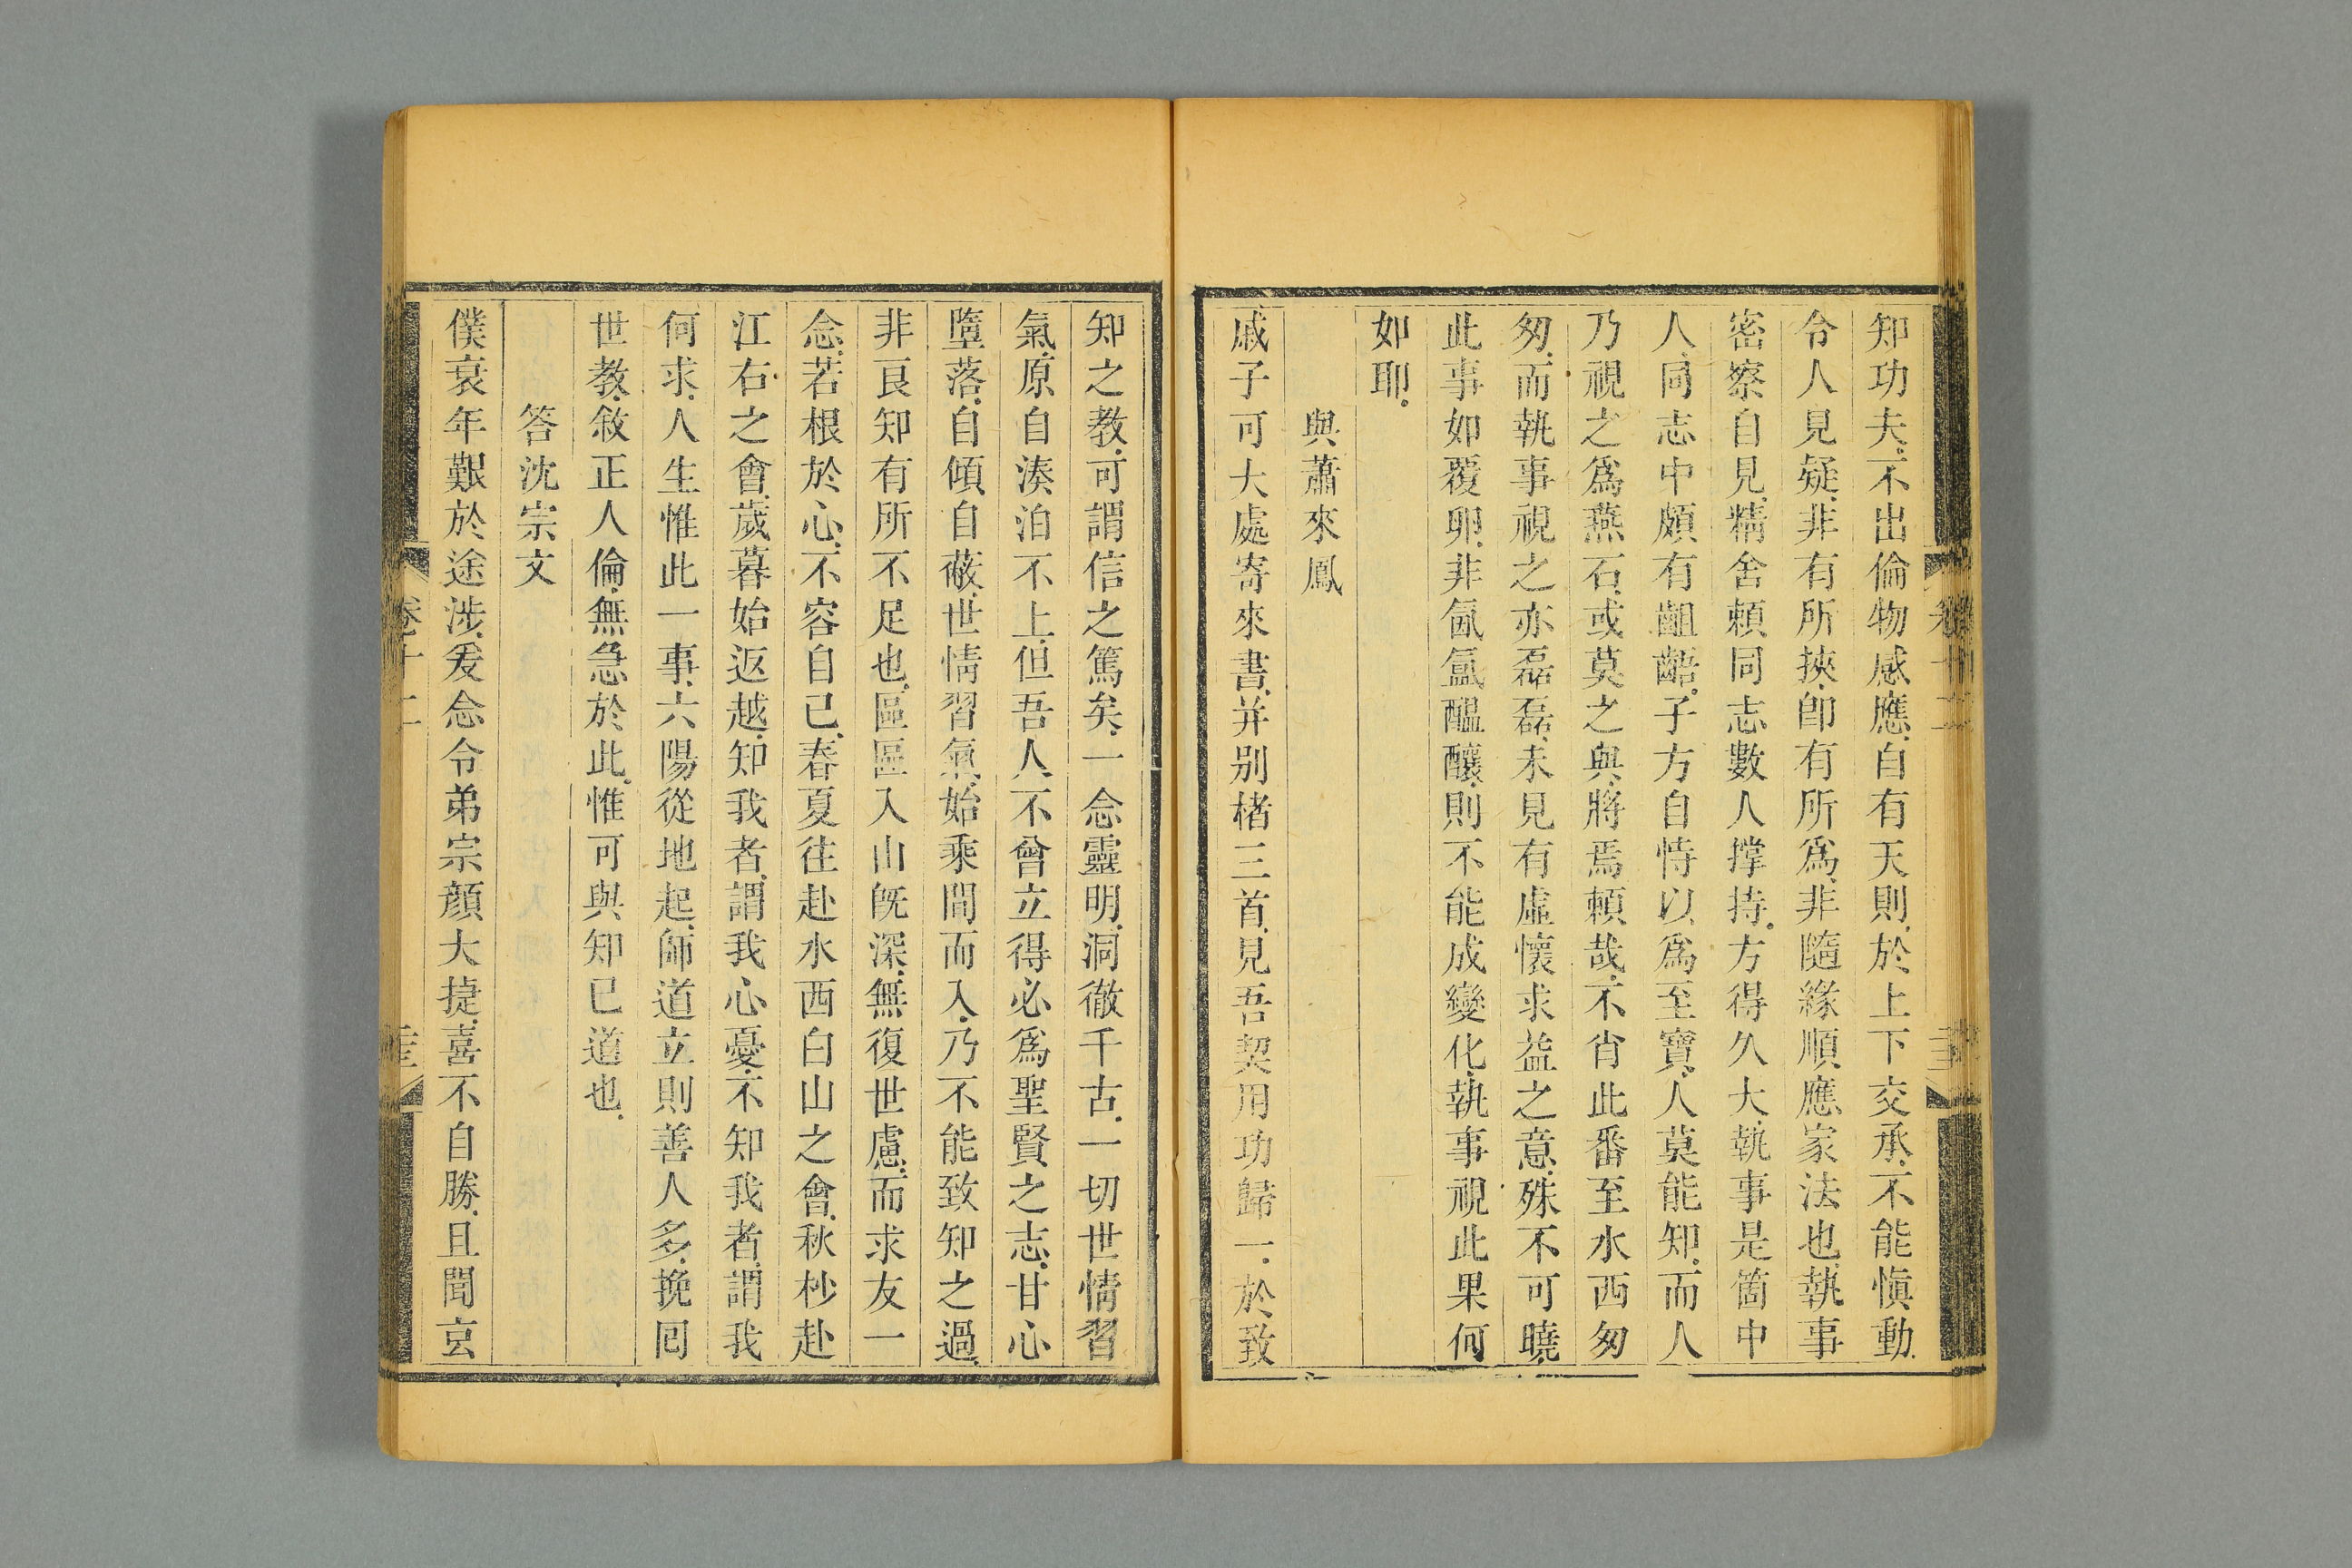 知功夫不出倫物感應自有天則於上下交承不能愼動
令人見疑非有所挾卽有所爲非隨緣順應家法也執事
密察自見精舍賴同志數人撑持方得久大執事是箇中
人同志中頗有齟齬子方自恃以爲至寶人莫能知而人
乃視之爲燕石或莫之與將焉賴哉不肖此番至水西匆
匆而執事視之亦磊磊未見有虛懷求益之意殊不可曉
此事如覆卵非氤氳醞釀則不能成變化執事視此果何
如耶
與蕭來鳳
戚子可大處寄來書并别楮三首見吾契用功歸一於致
知之教可謂信之篤矣一念靈明洞徹千古一切世情習
氣原自湊泊不上但吾人不曾立得必爲聖賢之志甘心
墮落自傾自蔽世情習氣始乘間而入乃不能致知之過
非良知有所不足也區區入山旣深無復世慮而求友一
念若根於心不容自已春夏往赴水西白山之會秋杪赴
江右之會歲暮始返越知我者謂我心憂不知我者謂我
何求人生惟此一事六陽從地起師道立則善人多挽囘
世教敘正人倫無急於此惟可與知已道也
答沈宗文
僕衰年艱於途涉爰念令弟宗顔大捷喜不自勝且聞玄
卷十二